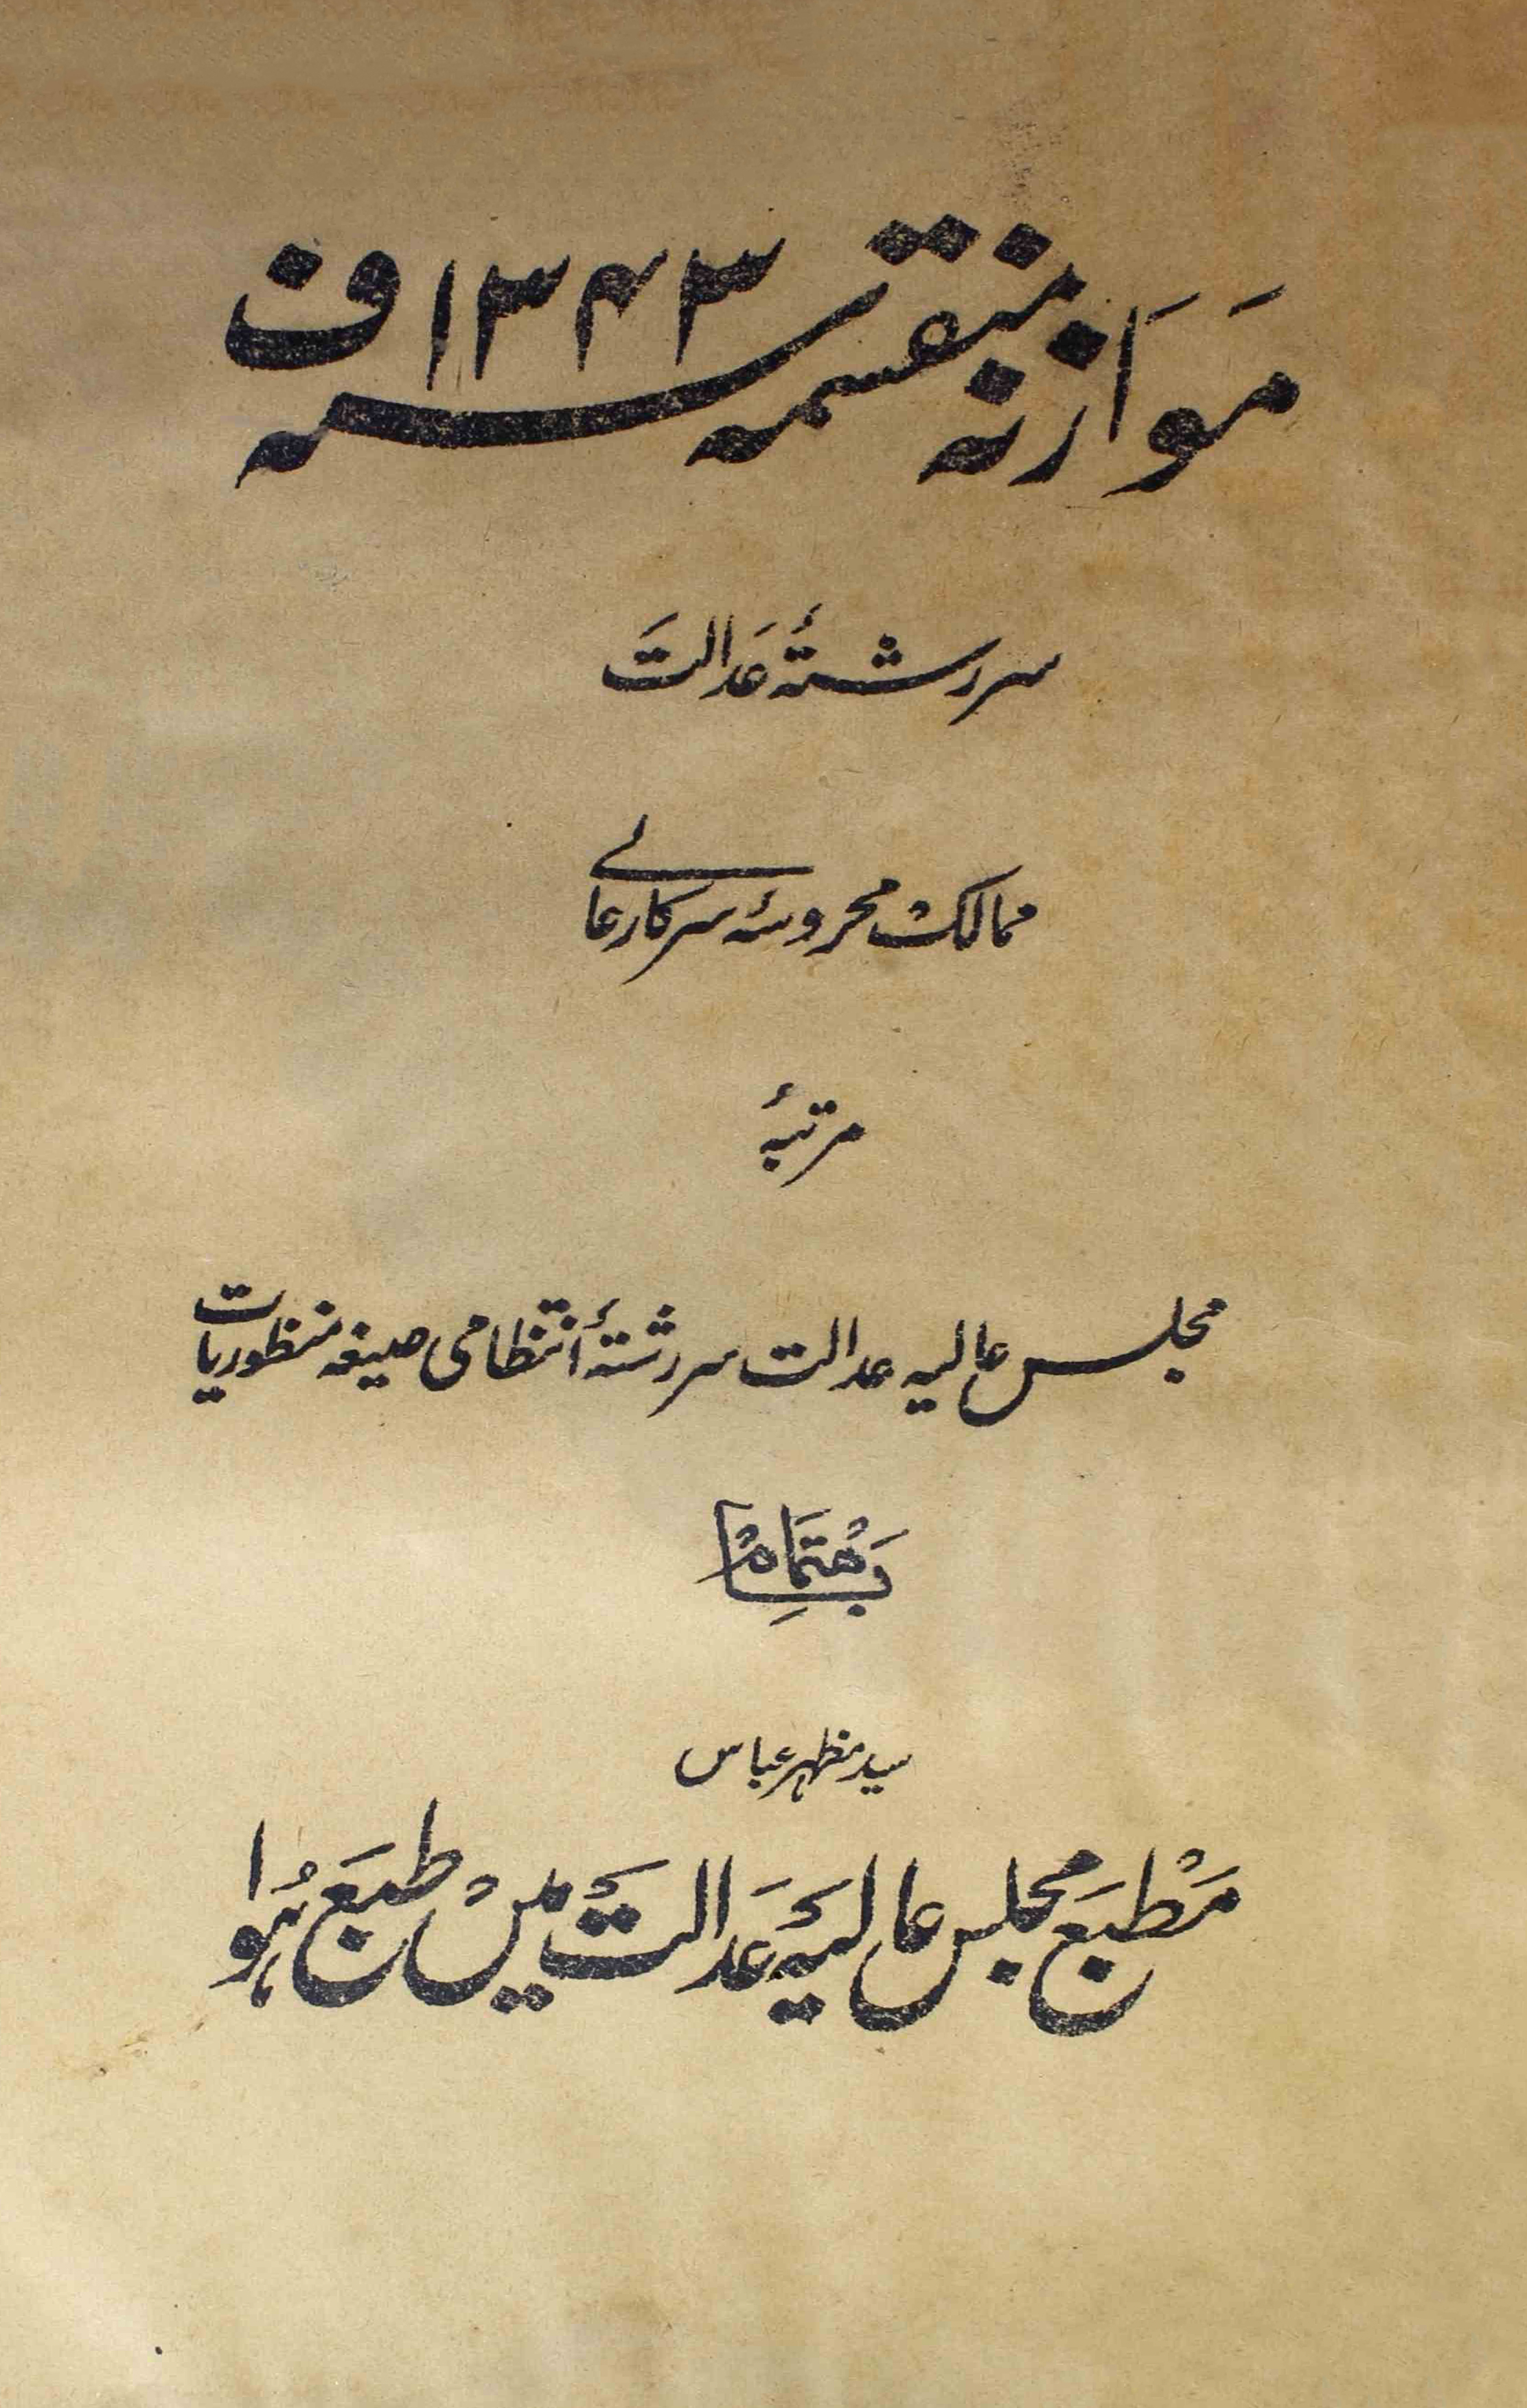 موازنہ منقسمہ سنہ ۱۳۴۳ف
سررشتۂ عدالت
ممالک محروسۂ سرکارعالی
مرتبۂ
مجلس عالیہ عدالت سررشتۂ انتظامی صیغہ منظوریات
باہتمام
سید مظہر عباس
مطبع مجلس عالیۂ عدالت میں طبع ہوا